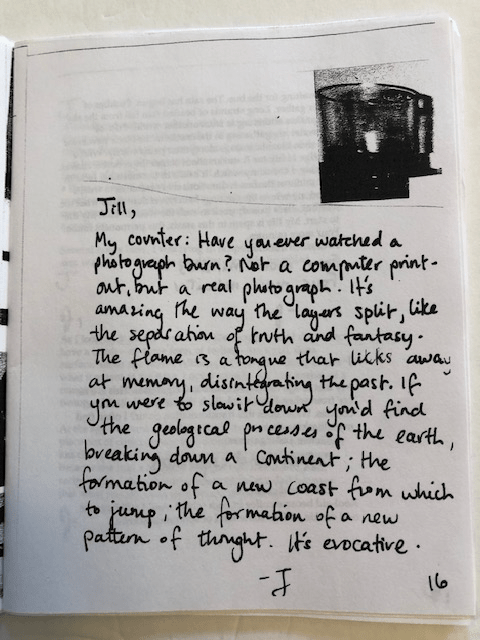 Jill,
My counter: Have you ever watched a
photograph burn? Not a computer print-
out, but a real photograph. It's
amazing the way the layers split, like
the separation of truth and fantasy.
The flame is a tongue that licks away
at memory, disintegrating the past. If
you were to slow it down you'd find
the geological processes of the earth,
breaking down a continent; the
formation of a new coast from which
to jump; the formation of a new
pattern of thought. It's evocative.
-J
16